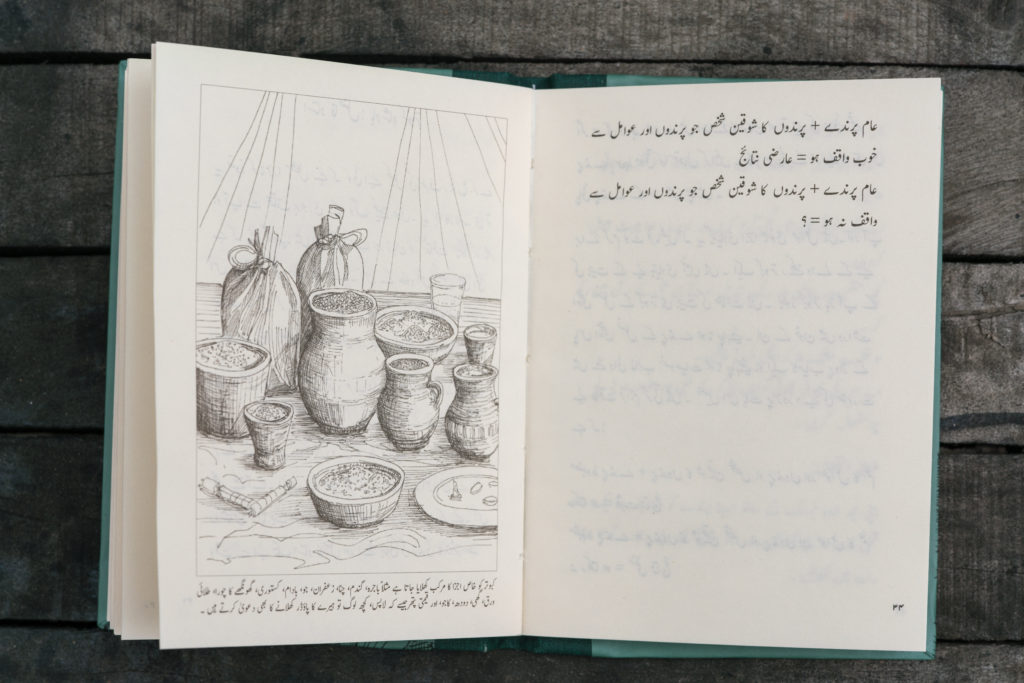 عام پرندے + پرندوں کا شوقین شخص جو پرندوں اور عوامل سے
خوب واقف ہو = عارضی نتائج
عام پرندے + پرندوں کا شوقین شخص جو پرندوں اور عوامل سے
واقف نہ ہو = ؟
۴۴
کبوتر کو خاص اجزا کا مرکب کھلایا جاتا ہے مثلاً باجرہ، گندم، چنا، زعفران، جو، بادام، کستوری، گھونگھے کا چورا، طلائی
ورق، گھی، دودھ، کاجو، اور قیمتی پتھر جیسے کہ لاپس، کچھ لوگ تو ہیرے کا پاؤڈر کھلانے کا بھی دعویٰ کرتے ہیں۔